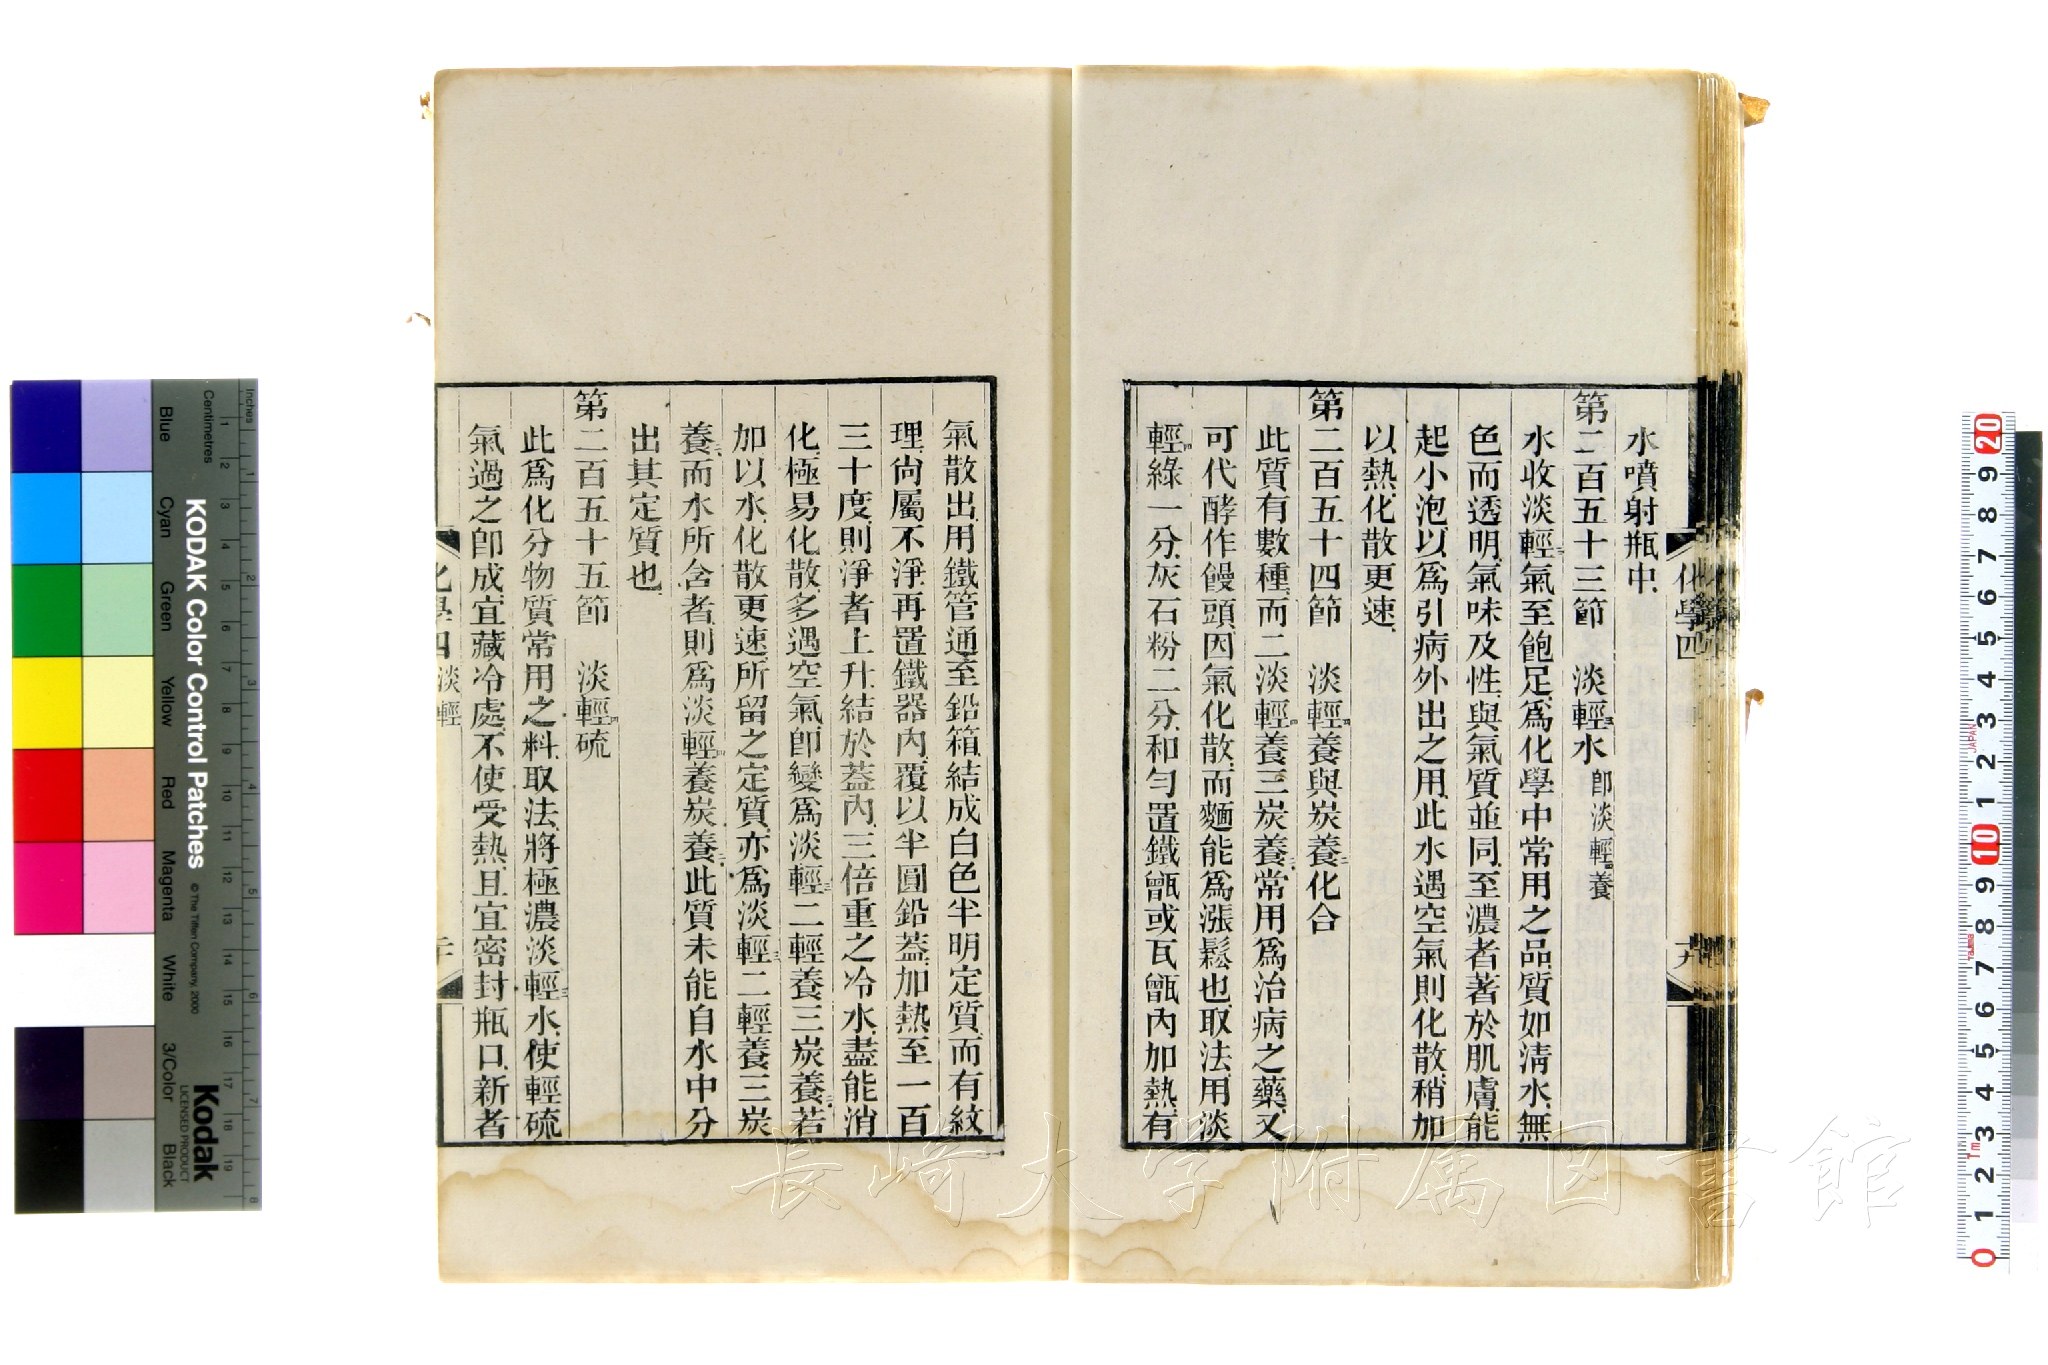 水噴射瓶中
第二百五十三節　淡輕三水 卽淡輕四養
水收淡輕三氣至飽足爲化學中常用之品質如淸水無
色而透明氣味及性與氣質並同至濃者著於肌膚能
起小泡以爲引病外出之用此水遇空氣則化散稍加
以熱化散更速
第二百五十四節　淡輕四養與炭養二化合
此質有數種而二淡輕四養三炭養二常用爲治病之藥又
可代酵作饅頭因氣化散而麵能爲漲鬆也取法用淡
輕四綠一分灰石粉二分和勻置鐵甑或瓦甑內加熱有
化學四
十九
氣散出用鐵管通至鉛箱結成白色半明定質而有紋
理尙屬不淨再置鐵器內覆以半圓鉛蓋加熱至一百
三十度則淨者上升結於蓋內三倍重之冷水盡能消
化極易化散多遇空氣卽變爲淡輕三二輕養三炭養二若
加以水化散更速所留之定質亦爲淡輕三二輕養三炭
養二而水所含者則爲淡輕四養炭養二此質未能自水中分
出其定質也
第二百五十五節　淡輕四硫
此爲化分物質常用之料取法將極濃淡輕三水使輕硫
氣過之卽成宜藏冷處不使受熱且宜密封瓶口新者
化學四 淡輕
二十
KODAK Color Control Patches
© The Tiffen Company, 2000
Kodak
LICENSED PRODUCT
Inches
Centimetres
Blue
Cyan
Green
Yellow
Red
Magenta
White
3/Color
Black
1 2 3 4 5 6 7 8 9 10 11 12 13 14 15 16 17 18 19
1 2 3 4 5 6 7 8
0 1 2 3 4 5 6 7 8 9 10 1 2 3 4 5 6 7 8 9 20
JAPAN
長崎大学附属図書館